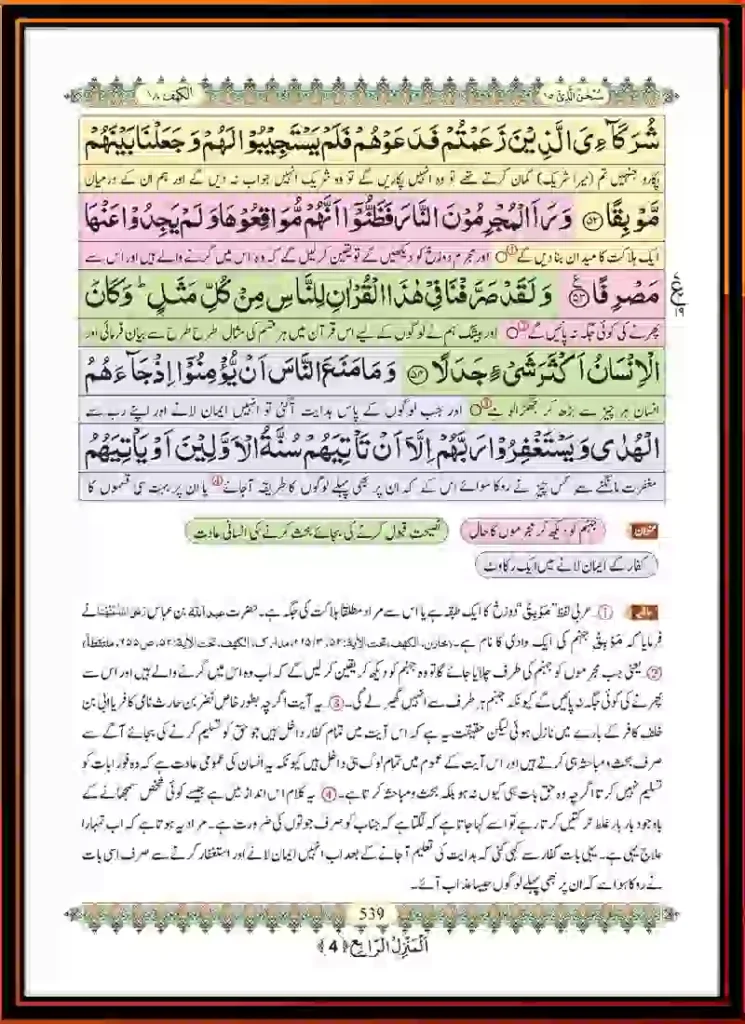 سُبْحٰنَ الَّذِیْ ١٥
الكهف ١٨
شُرَكَآءِیَ الَّذِیْنَ زَعَمْتُمْ فَدَعَوْهُمْ فَلَمْ یَسْتَجِیْبُوْا لَهُمْ وَ جَعَلْنَا بَیْنَهُمْ
پکارو جنہیں تم (میرا شریک) گمان کرتے تھے تو وہ انہیں پکاریں گے تو وہ شریک انہیں جواب نہ دیں گے اور ہم ان کے درمیان
مَّوْبِقًا ﴿۵۲﴾ وَ رَاَ الْمُجْرِمُوْنَ النَّارَ فَظَنُّوْۤا اَنَّهُمْ مُّوَاقِعُوْهَا وَ لَمْ یَجِدُوْا عَنْهَا
ایک ہلاکت کا میدان بنا دیں گے ① اور مجرم دوزخ کو دیکھیں گے تو یقین کرلیں گے کہ وہ اس میں گرنے والے ہیں اور اس سے
مَصْرِفًا ﴿۵۳﴾ وَ لَقَدْ صَرَّفْنَا فِیْ هٰذَا الْقُرْاٰنِ لِلنَّاسِ مِنْ كُلِّ مَثَلٍ ؕ وَ كَانَ
ع ١٩
پھرنے کی کوئی جگہ نہ پائیں گے ② اور بیشک ہم نے لوگوں کے لیے اس قرآن میں ہر قسم کی مثال طرح طرح سے بیان فرمائی اور
الْاِنْسَانُ اَكْثَرَ شَیْءٍ جَدَلًا ﴿۵۴﴾ وَ مَا مَنَعَ النَّاسَ اَنْ یُّؤْمِنُوْۤا اِذْ جَآءَهُمُ
انسان ہر چیز سے بڑھ کر جھگڑالو ہے ③ اور جب لوگوں کے پاس ہدایت آگئی تو انہیں ایمان لانے اور اپنے رب سے
الْهُدٰی وَ یَسْتَغْفِرُوْا رَبَّهُمْ اِلَّاۤ اَنْ تَاْتِیَهُمْ سُنَّةُ الْاَوَّلِیْنَ اَوْ یَاْتِیَهُمُ
مغفرت مانگنے سے کس چیز نے روکا سوائے اس کے کہ ان پر بھی پہلے لوگوں کا طریقہ آجائے ④ یا ان پر بہت سی قسموں کا
عنوان جہنم کو دیکھ کر مجرموں کا حال نصیحت قبول کرنے کی بجائے بحث کرنے کی انسانی عادت
کفار کے ایمان لانے میں ایک رکاوٹ
حاشیہ ①۔ عربی لفظ "مَوْبِقٌ" دوزخ کا ایک طبقہ ہے یا اس سے مراد مطلقا ہلاکت کی جگہ ہے۔ حضرت عبد اللہ بن عباس رَضِیَ اللہُ عَنْهُمَا نے
فرمایا کہ مَوْبِقٌ جہنم کی ایک وادی کا نام ہے۔ (خازن، الکھف، تحت الآیۃ: ۵۲، ۲۱۵/۳، مدارک، الکھف، تحت الآیۃ: ۵۲، ص ۶۵۵، ملتقطاً)
②۔ یعنی جب مجرموں کو جہنم کی طرف چلایا جائے گا تو وہ جہنم کو دیکھ کر یقین کرلیں گے کہ اب وہ اس میں گرنے والے ہیں اور اس سے
پھرنے کی کوئی جگہ نہ پائیں گے کیونکہ جہنم ہر طرف سے انہیں گھیر لے گی۔ ③۔ یہ آیت اگرچہ بطور خاص نضر بن حارث نامی کافر یا ابی بن
خلف کافر کے بارے میں نازل ہوئی لیکن حقیقت یہ ہے کہ اس آیت میں تمام کفار داخل ہیں جو حق کو تسلیم کرنے کی بجائے آگے سے
صرف بحث و مباحثہ ہی کرتے ہیں اور اس آیت کے عموم میں تمام لوگ بھی داخل ہیں کیونکہ یہ انسان کی عمومی عادت ہے کہ وہ فوراً بات کو
تسلیم نہیں کرتا اگرچہ وہ حق بات ہی کیوں نہ ہو بلکہ بحث و مباحثہ کرتا ہے۔ ④۔ یہ کلام اس انداز میں ہے جیسے کوئی شخص سمجھانے کے
باوجود بار بار غلط حرکتیں کرتا رہے تو اسے کہا جاتا ہے کہ لگتا ہے کہ جناب کو صرف جوتوں کی ضرورت ہے۔ مراد یہ ہوتا ہے کہ اب تمہارا
علاج یہی ہے۔ یہی بات کفار سے کہی گئی کہ ہدایت کی تعلیم آجانے کے بعد اب انہیں ایمان لانے اور استغفار کرنے سے صرف اسی بات
نے روکا ہوا ہے کہ ان پر بھی پہلے لوگوں جیسا عذاب آئے۔
539
اَلْمَنْزِلُ الرَّابِع ﴿4﴾